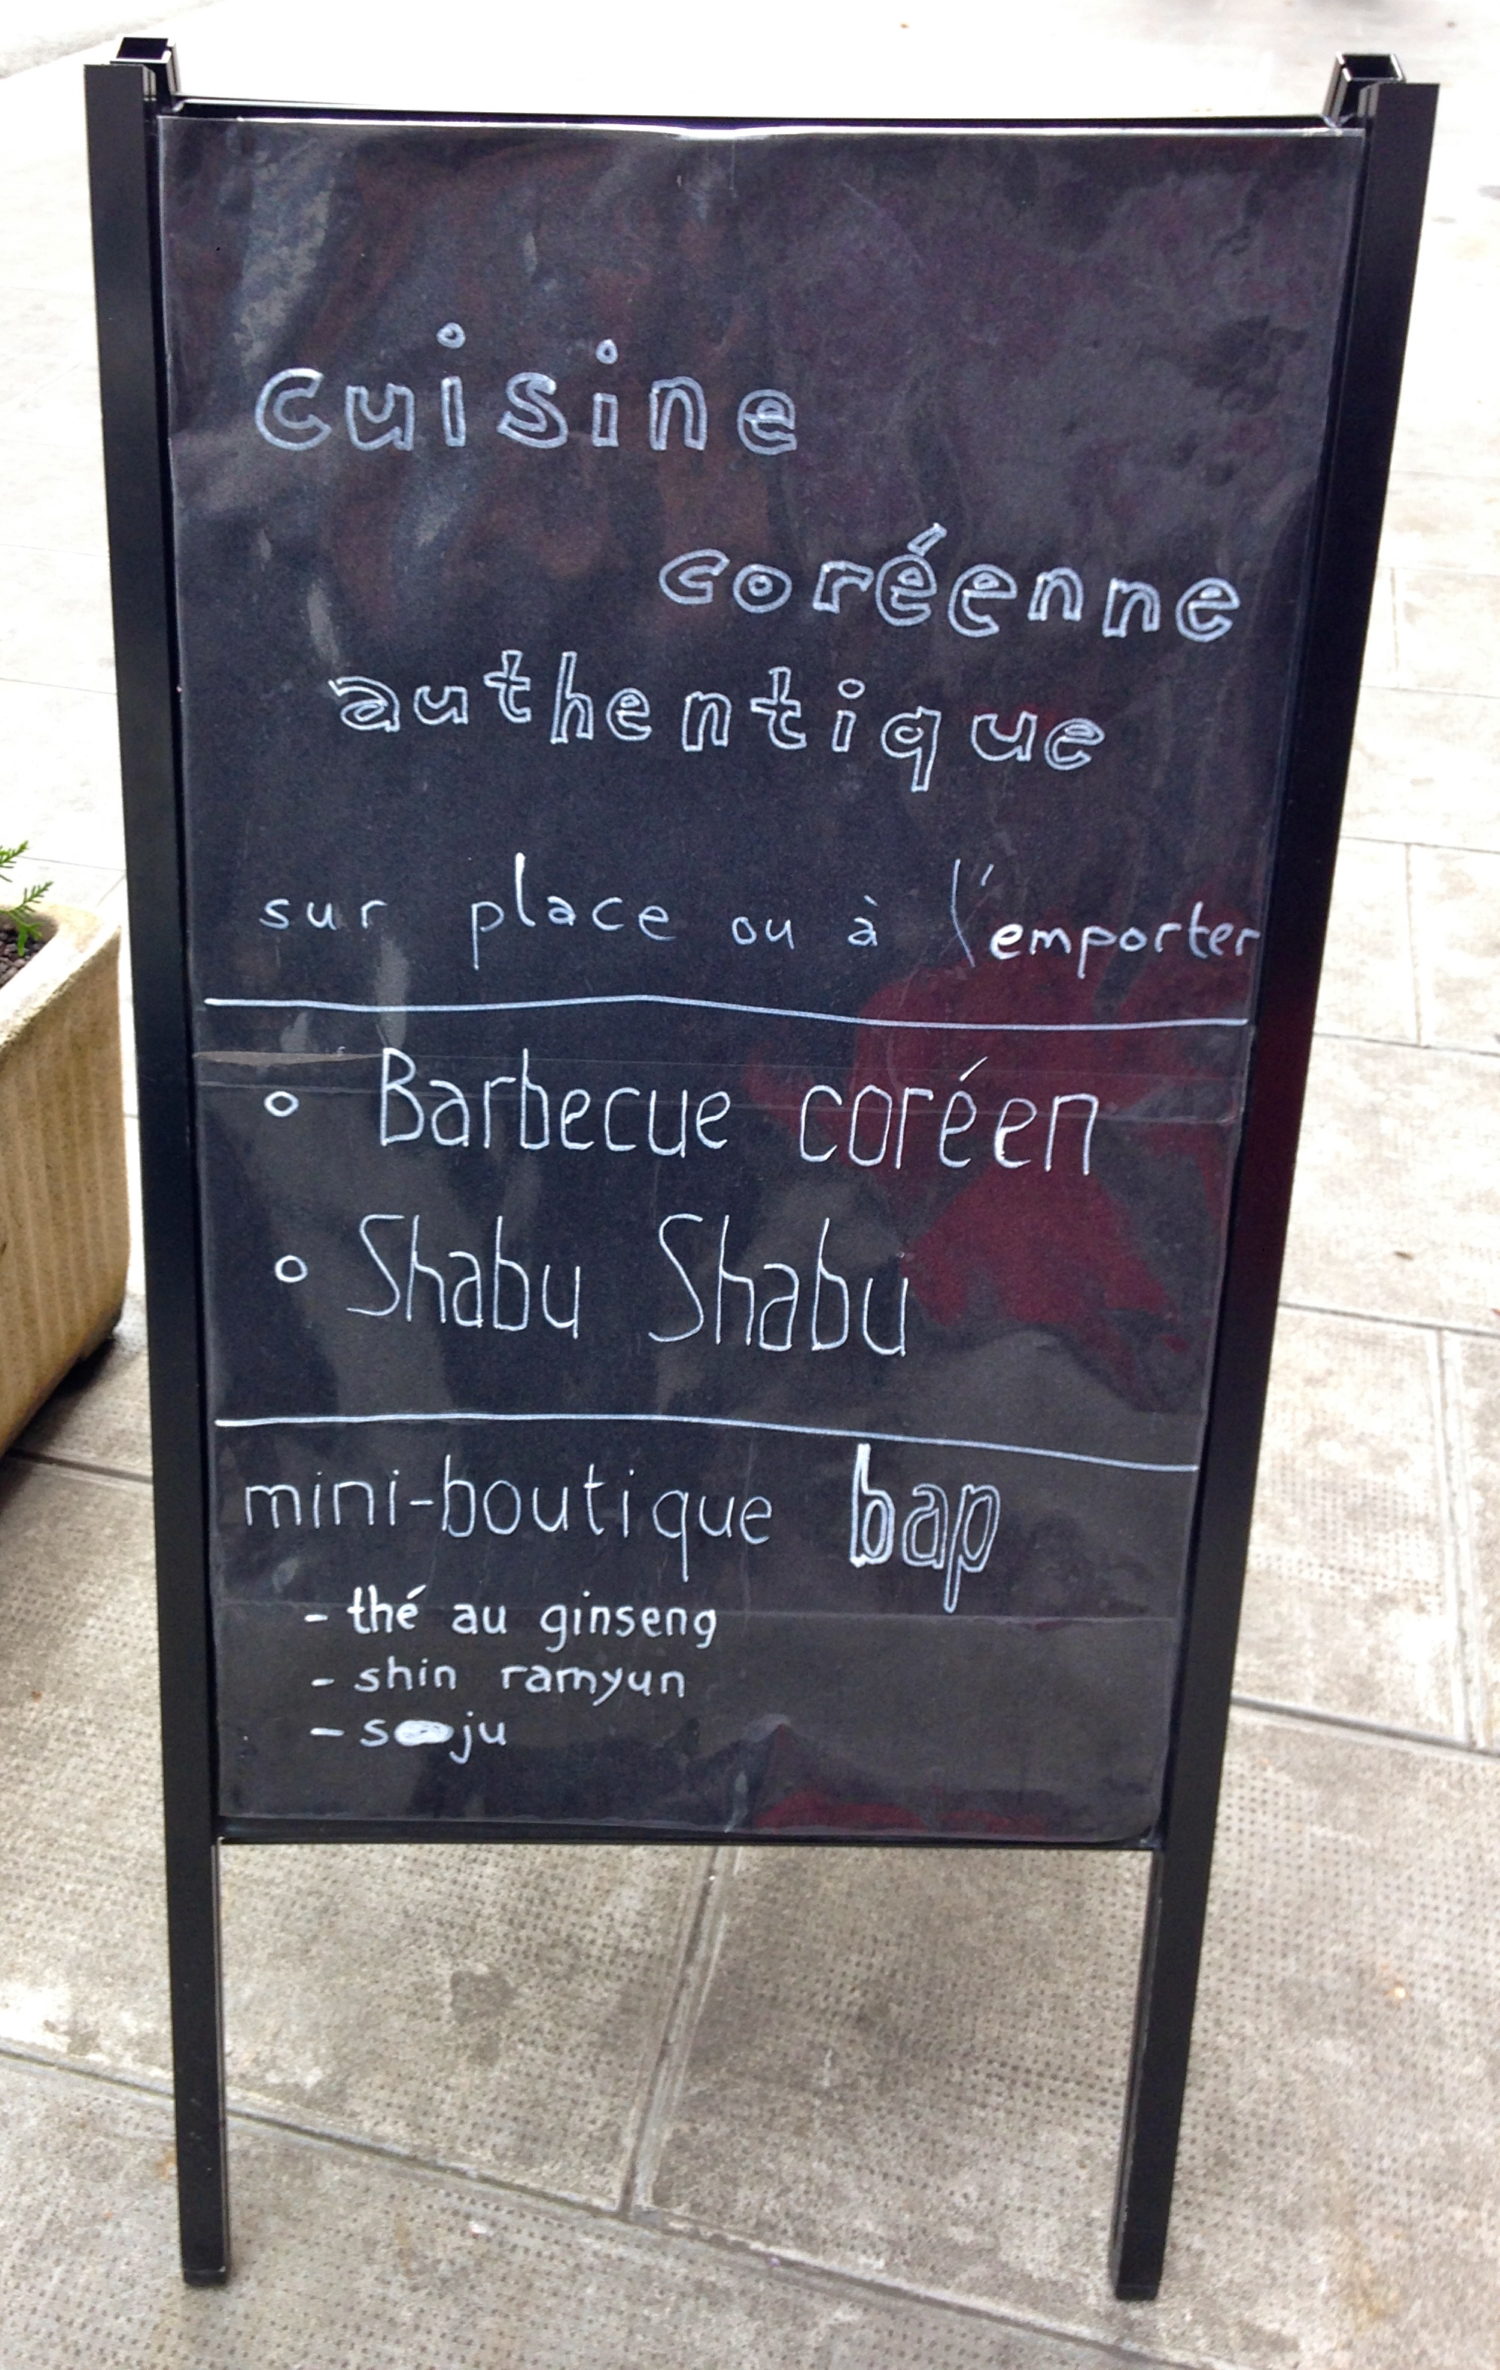 cuisine
coréenne
authentique
sur place ou à l'emporter
o Barbecue coréen
o Shabu Shabu
mini-boutique bap
- thé au ginseng
- shin ramyun